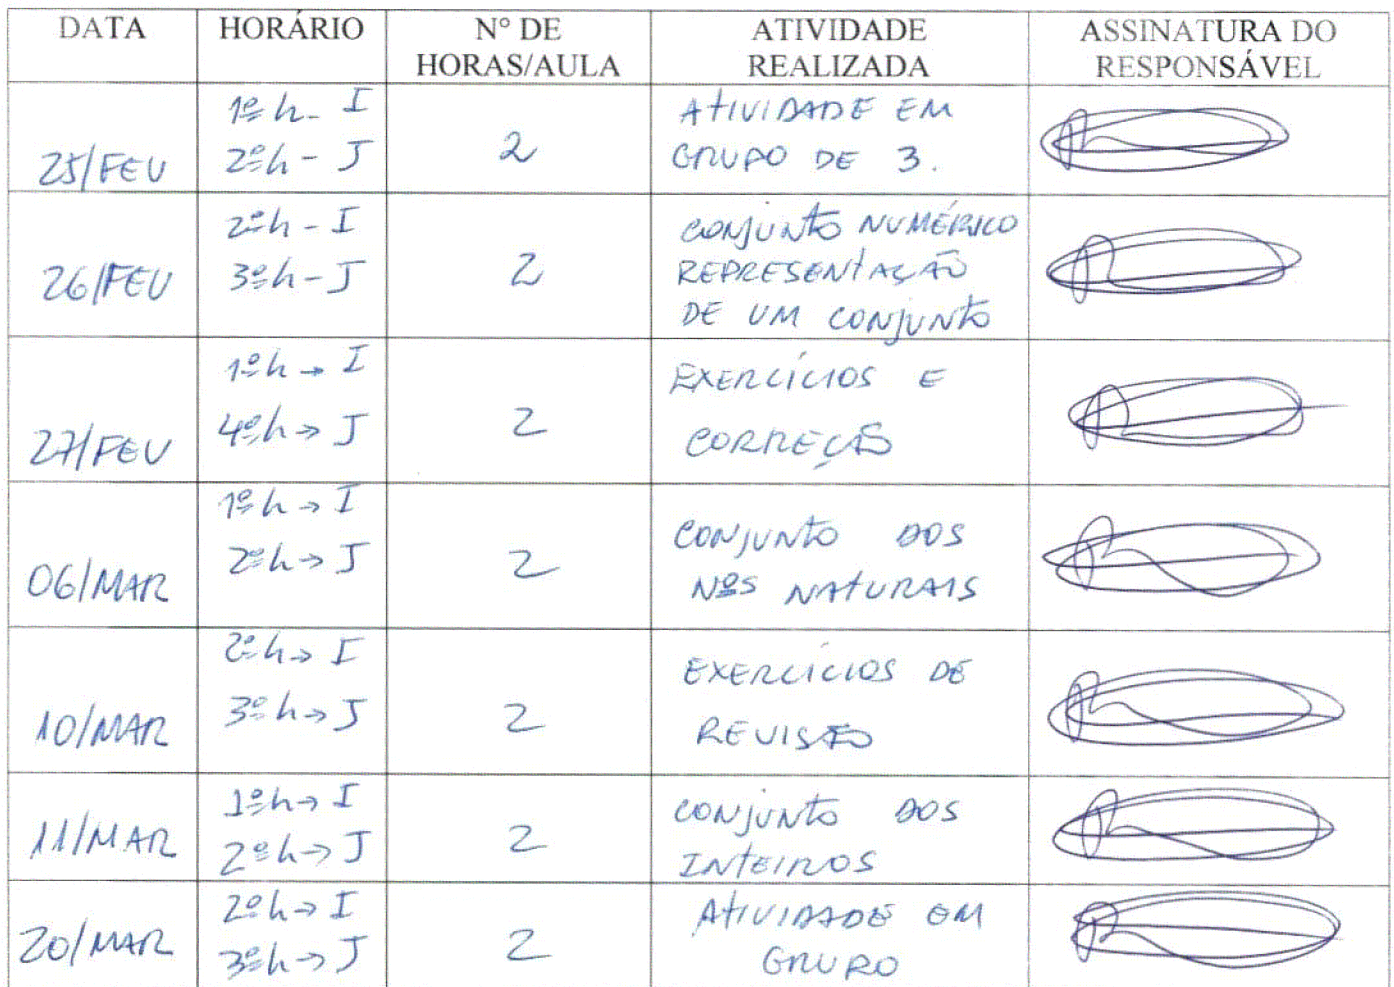 DATA HORÁRIO Nº DE HORAS/AULA ATIVIDADE REALIZADA ASSINATURA DO RESPONSÁVEL
25/FEU
1ºh- I
2ºh- J
2
ATIVIDADE EM
GRUPO DE 3.
26/FEU
2ºh - I
3ºh - J
2
CONJUNTO NUMÉRICO
REPRESENTAÇÃO
DE UM CONJUNTO
27/FEU
1ºh → I
4ºh → J
2
EXERCÍCIOS E
CORREÇÃO
06/MAR
1ºh → I
2ºh → J
2
CONJUNTO DOS
NºS NATURAIS
10/MAR
2ºh → I
3ºh → J
2
EXERCÍCIOS DE
REVISÃO
11/MAR
1ºh → I
2ºh → J
2
CONJUNTO DOS
INTEIROS
20/MAR
2ºh → I
3ºh → J
2
ATIVIDADE EM
GRUPO